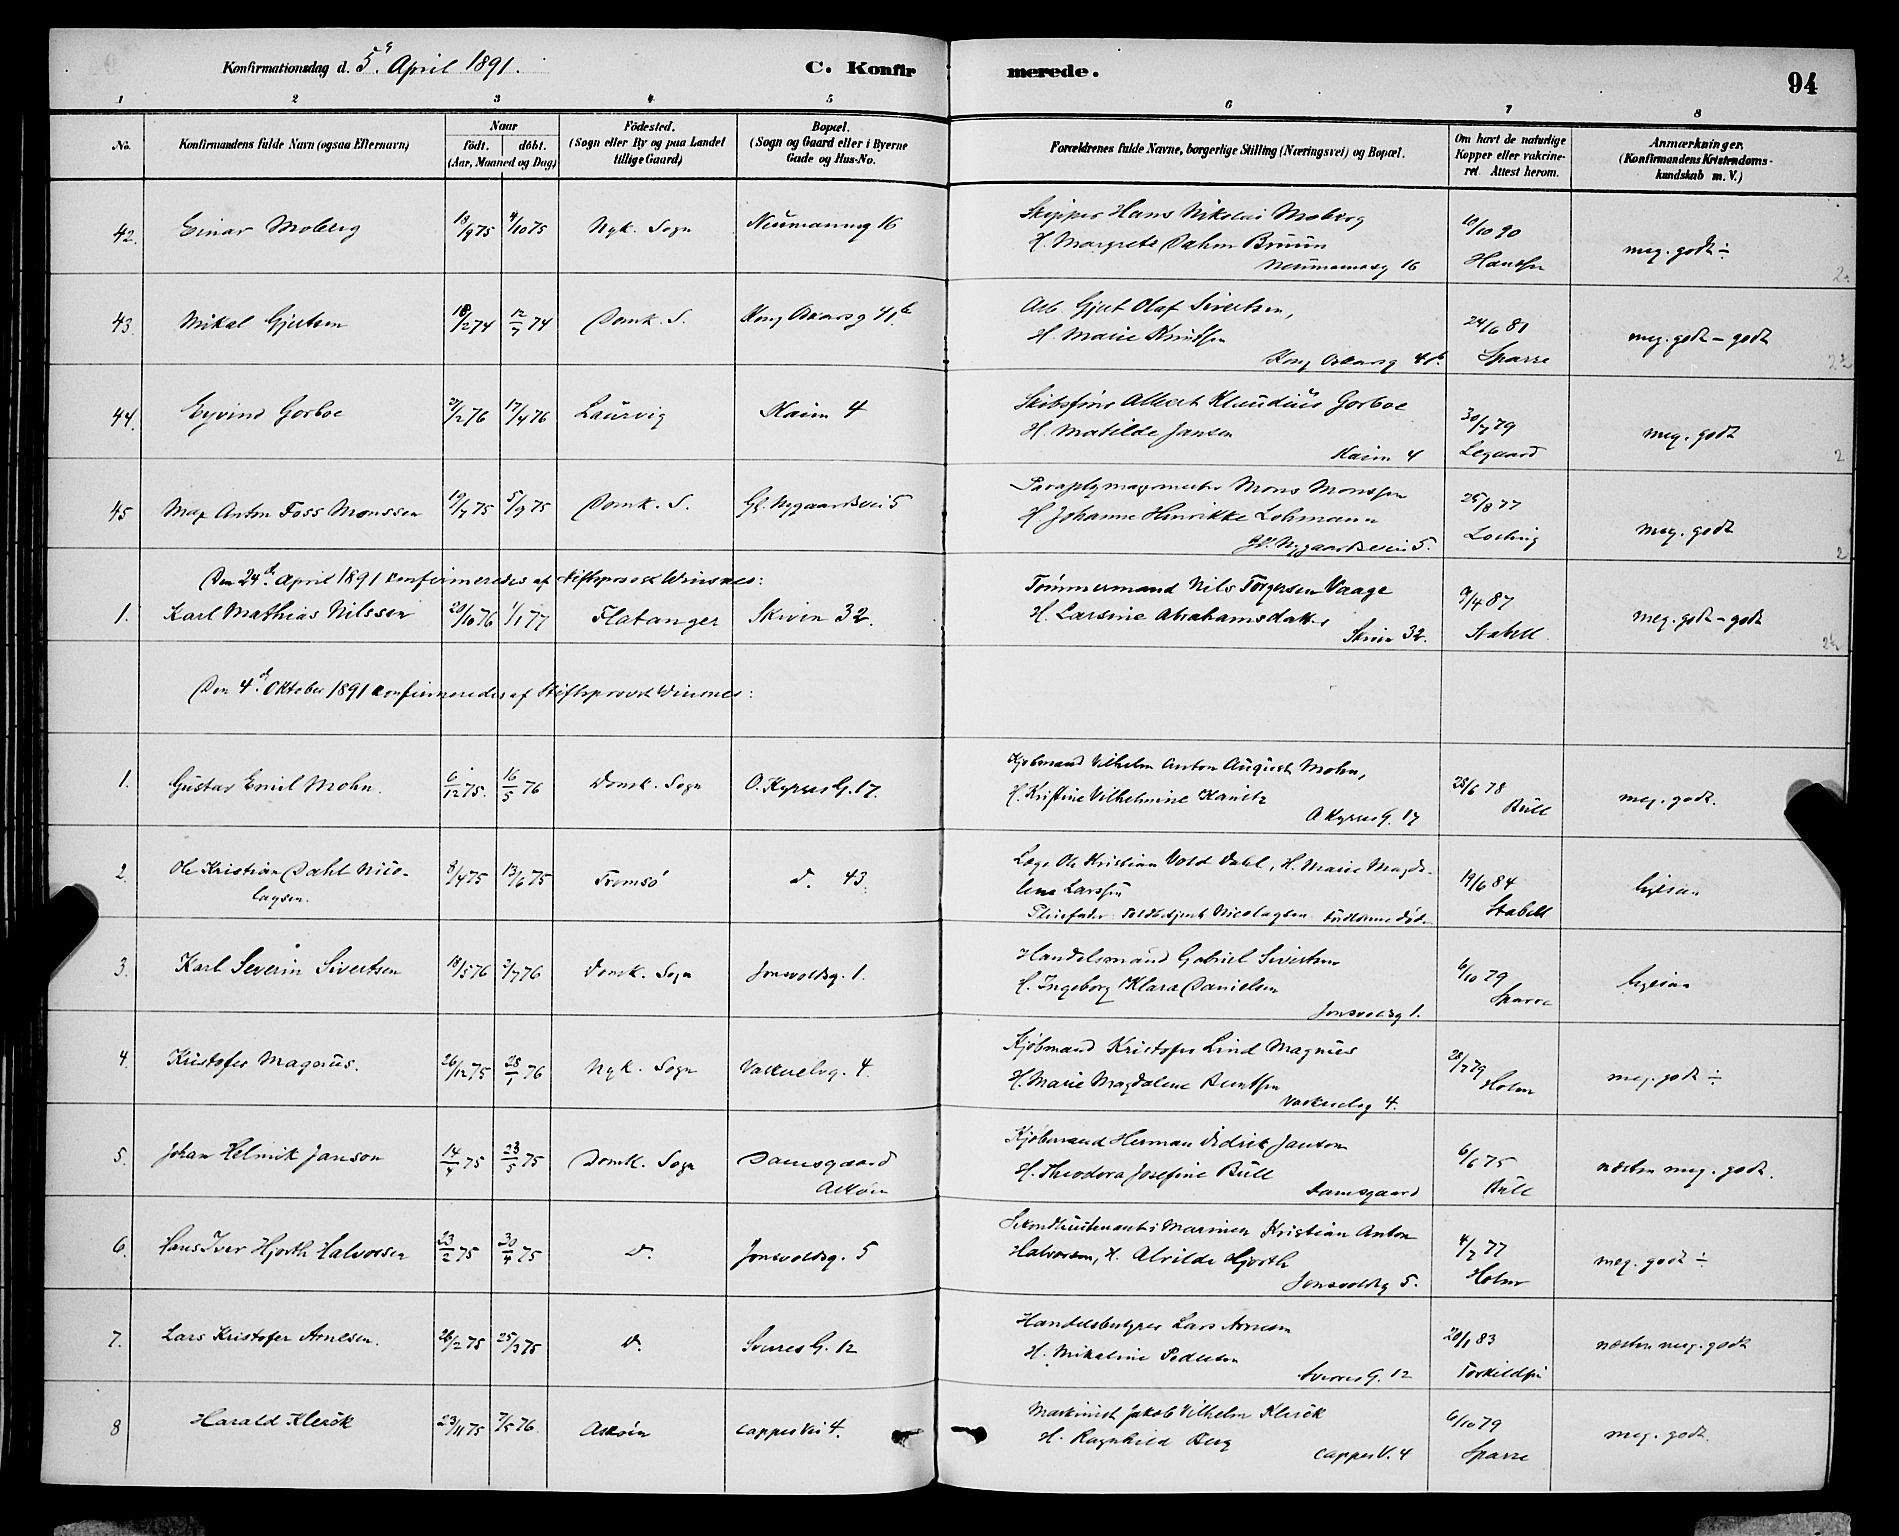 Konfirmationsdag d. 5. April 1891.
C. Konfirmerede.
94
1 2 3 4 5 6 7 8
No.
Konfirmandens fulde Navn (ogsaa Efternavn)
Naar
födt. döbt.
(Aar, Maaned og Dag)
Födested.
(Sogn eller By og paa Landet
tillige Gaard)
Bopæl.
(Sogn og Gaard eller i Byerne
Gade og Hus-No.
Forældrenes fulde Navne, borgerlige Stilling (Næringsvei) og Bopæl.
Om havt de naturlige
Kopper eller vakcine-
ret. Attest herom.
Anmærkninger.
(Konfirmandens Kristendoms-
kundskab m. V.)
42. Einar Moberg 18/9 75 4/10 75 Nyk. Sogn Neumannsg 16
Skipper Hans Nikolai Moberg
H. Margrete Dahm Bruun
Neumannsg 16
10/10 90
meg. godt ÷
43. Mikal Gjertsen 18/2 74 12/7 74 Domk. S. Kong Oscarsg 41b
Arb. Gjert Olaf Sivertsen,
H. Marie Knutsen
Kong Oskarsg 41b.
24/6 81
Sparre
meg. godt - godt
44. Eyvind Gorboe 21/2 76 17/4 76 Laurvig Kaien 4
Skibsfører Albert Klaudius Gorboe
H. Matilde Jansen
Kaien 4
30/7 79
Legaard
meg. godt
2
45 Max Anton Foss Monssen 19/7 75 5/9 75 Domk. S. Gl. Nygaardsvei 5
Paraplymagermester Mons Monssen
H Johanne Henrikke Lohmann
Gl. Nygaardsveien 5.
25/8 77
meg. godt
2
Den 24d. April 1891 konfirmeredes af Stiftsprovst Winsnes:
1. Karl Mathias Nilssen 20/10 76 1/1 77 Flatanger Skiven 32.
Tømmermand Nils Torgersen Vaage
H. Larsine Abrahamsdatter
Skiven 32.
9/4 87
Stabell
meg. godt - godt
Den 4d. Oktober 1891 konfirmeredes af Stiftsprovst Winsnes:
1. Gustav Emil Mohn. 6/12 75. 16/5 76 Domk. Sogn O. Kyrres G. 17.
Kjøbmand Vilhelm Anton August Mohn,
H. Kristine Vilhelmine Kanitz
O Kyrres G. 17
28/6 78
Bull
meg. godt.
2. Ole Kristian Dahl Nico-
laysen. 8/4 75 13/6 75 Tromsö d. 43.
Læge Ole Kristian Vold Dahl, H. Marie Magda-
lena Larssen
Pleiefader: Nicolaysen Forældrene døde
19/6 84
Stabell
ligesaa
3. Karl Severin Sivertsen 18/5 76 2/7 76 Domk. Sogn Jonsvoldsg. 1.
Handelsmand Gabriel Sivertsen
H. Ingeborg Klara Danielsen
Jonsvoldsg 1.
6/10 79
Sparre
ligesaa
4. Kristofer Magnus. 26/12 75 28/1 76 Nyk. Sogn Vaskerelvg. 4.
Kjøbmand Kristofer Lind Magnus
H. Marie Magdalene Berntsen
Vaskerelvg 4.
28/7 79
Holm
meg. godt ÷
5. Johan Helmik Janson 14/4 75 23/5 75 Domk. Sogn Damsgaard
Askøen
Kjøbmand Herman Didrik Janson
H. Theodora Josefine Bull
Damsgaard
6/6 75
Bull
næsten meg. godt.
6. Hans Iver Hjorth Halvorsen 23/2 75 30/4 75 d. Jonsvoldsg. 5
Sekondlieutenant i Marinen Kristian Anton
Halvorsen, H. Alvilde Hjorth
Jonsvoldsg 5.
4/7 77
Holm
meg. godt ÷
7. Lars Kristofer Arnesen. 26/2 75 25/3 75 d. Sverres G. 12
Handelsbestyrer Lars Arnesen
H. Mikaline Pedersen
Sverres G. 12
20/1 83
Torkildsen
næsten meg. godt
8 Harald Klerck 23/11 75 7/5 76 Askøen Cappes Vei 4.
Maskinist Jakob Vilhelm Klerck
H. Ragnhild Berg
Cappes V. 4
6/10 79
Sparre
meg. godt.